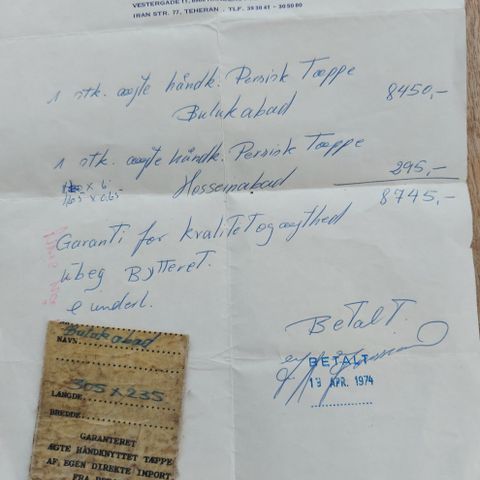 VESTERGADE 11,
IRAN STR. 77, TEHERAN . TLF. 39 30 41 - 30 50 80
1 stk. ægte håndk. Persisk Tæppe 8450,-
Bulukabad
1 stk. ægte håndk. Persisk Tæppe
Hosseinabad 295,-
8745,-
Garanti for kvalitet og ægthed
ubeg Bytteret.
e undert.
Betalt.
BETALT
19 APR. 1974
Bulukabad
NAVN
305 x 235
LÆNGDE
BREDDE
GARANTERET
ÆGTE HÅNDKNYTTET TÆPPE
AF EGEN DIREKTE IMPORT
FRA